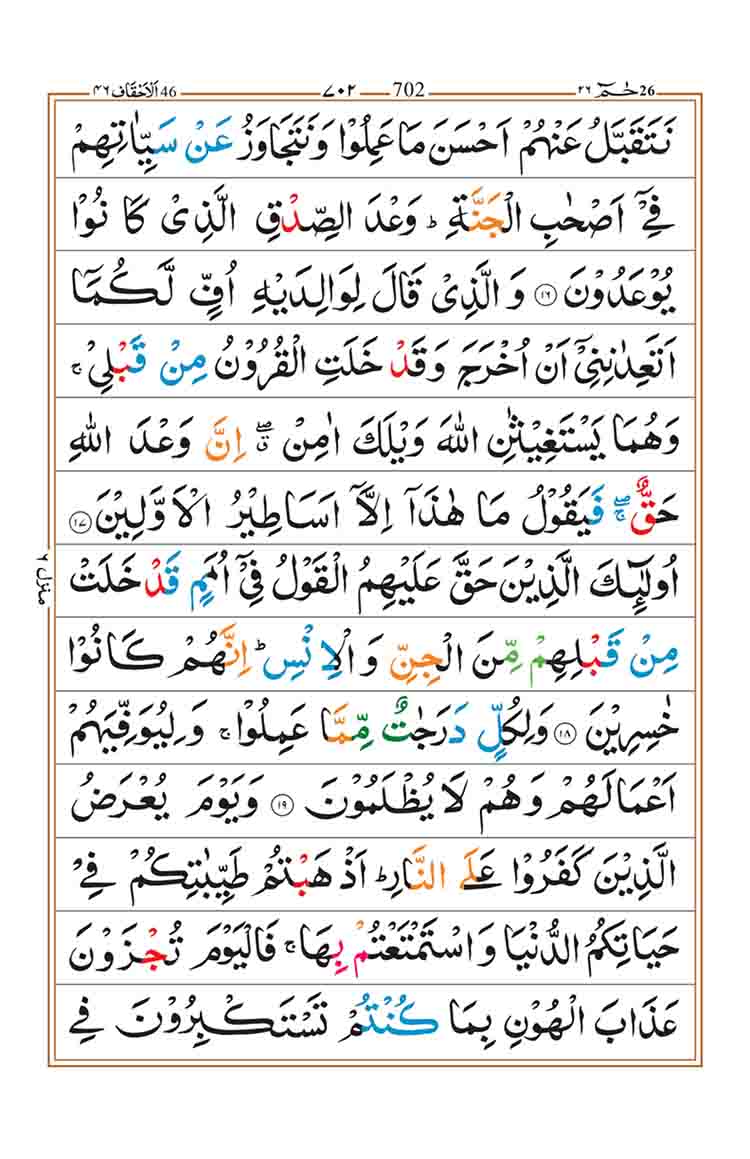 الاحقاف ٤٦ 46 ٧٠٢ 702 حٰمٓ ٢٦ 26
نَتَقَبَّلُ عَنْهُمْ اَحْسَنَ مَا عَمِلُوْا وَنَتَجَاوَزُ عَنْ سَيِّاٰتِهِمْ
فِيْٓ اَصْحٰبِ الْجَنَّةِ ؕ وَعْدَ الصِّدْقِ الَّذِيْ كَانُوْا
يُوْعَدُوْنَ ۝١٦ وَالَّذِيْ قَالَ لِوَالِدَيْهِ اُفٍّ لَّكُمَآ
اَتَعِدٰنِنِيْٓ اَنْ اُخْرَجَ وَقَدْ خَلَتِ الْقُرُوْنُ مِنْ قَبْلِيْ ۚ
وَهُمَا يَسْتَغِيْثٰنِ اللّٰهَ وَيْلَكَ اٰمِنْ ۖۗ اِنَّ وَعْدَ اللّٰهِ
حَقٌّ ۖۚ فَيَقُوْلُ مَا هٰذَآ اِلَّآ اَسَاطِيْرُ الْاَوَّلِيْنَ ۝١٧
اُولٰٓئِكَ الَّذِيْنَ حَقَّ عَلَيْهِمُ الْقَوْلُ فِيْٓ اُمَمٍ قَدْ خَلَتْ
مِنْ قَبْلِهِمْ مِّنَ الْجِنِّ وَالْاِنْسِ ؕ اِنَّهُمْ كَانُوْا
خٰسِرِيْنَ ۝١٨ وَلِكُلٍّ دَرَجٰتٌ مِّمَّا عَمِلُوْا ۚ وَلِيُوَفِّيَهُمْ
اَعْمَالَهُمْ وَهُمْ لَا يُظْلَمُوْنَ ۝١٩ وَيَوْمَ يُعْرَضُ
الَّذِيْنَ كَفَرُوْا عَلَى النَّارِ ؕ اَذْهَبْتُمْ طَيِّبٰتِكُمْ فِيْ
حَيَاتِكُمُ الدُّنْيَا وَاسْتَمْتَعْتُمْ بِهَا ۚ فَالْيَوْمَ تُجْزَوْنَ
عَذَابَ الْهُوْنِ بِمَا كُنْتُمْ تَسْتَكْبِرُوْنَ فِي
منزل ٦